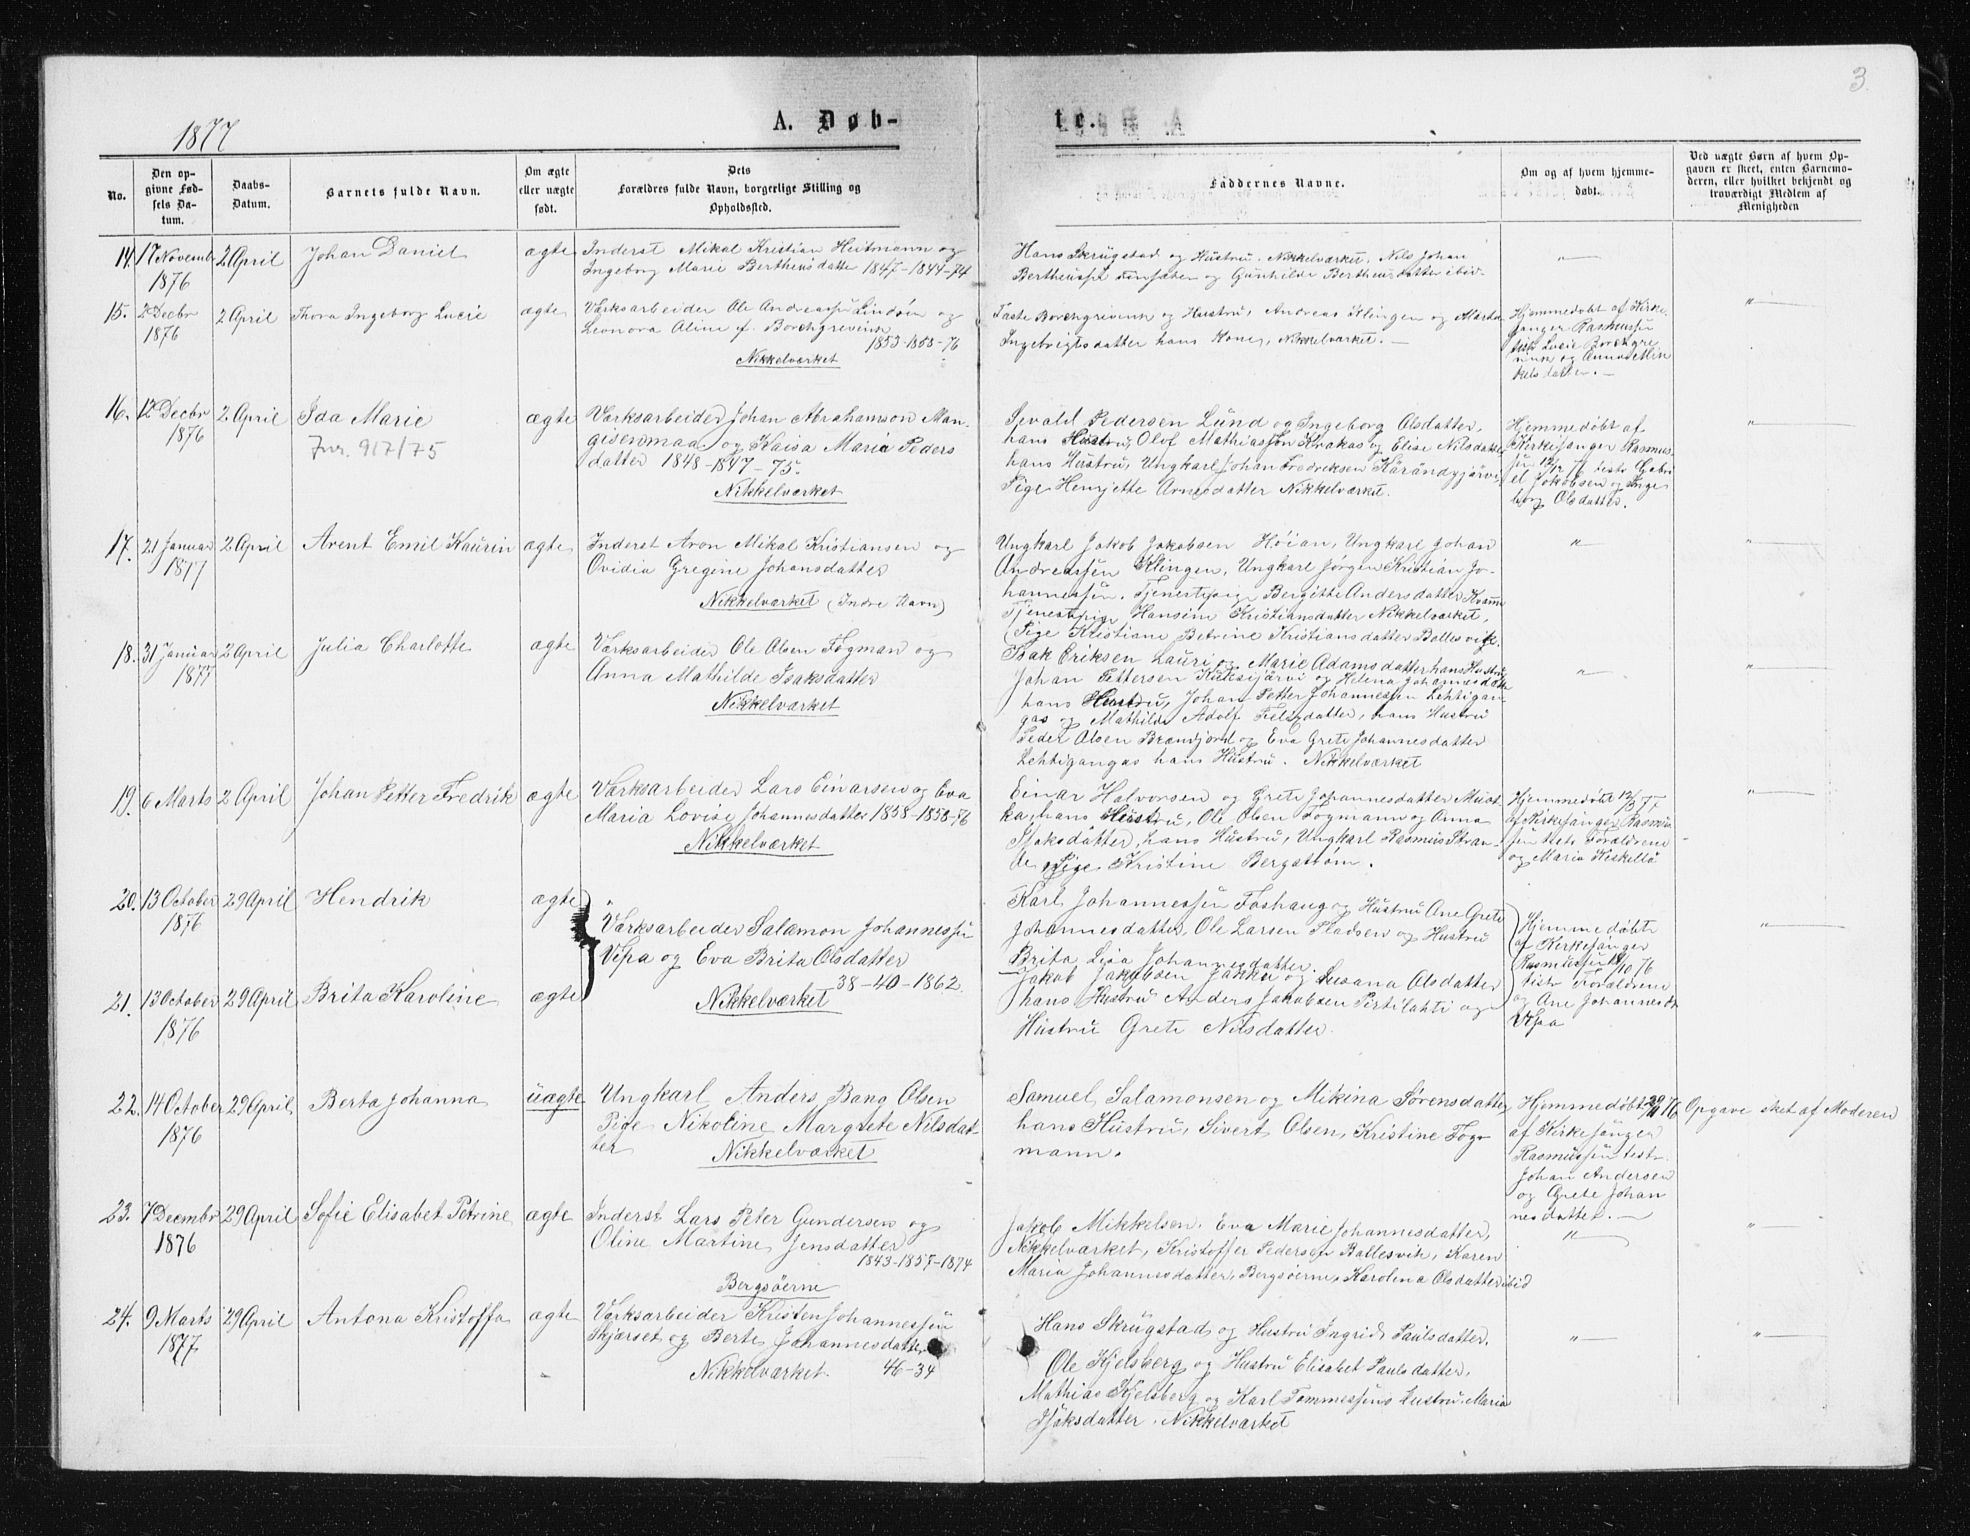 3.
1877
A. Døb-
te.
No.
Den opgivne Fødsels Datum.
Daabs-Datum.
Barnets fulde Navn.
Om ægte eller uægte født.
Dets Forældres fulde Navn, borgerlige Stilling og Opholdssted.
Faddernes Navne.
Om og af hvem hjemmedøbt.
Ved uægte Børn af hvem Opgaven er skeet, enten Barnemoderen, eller hvilket bekjendt og troværdigt Medlem af Menigheden
14. 17 Novembr 1876 2 April Johan Daniel ægte
Inderst Mikal Kristian Heitmann og
Ingeborg Marie Bertheusdatter 1847-1844-74
Hans Skrugstad og Hustru, Nikkelværket, Nils Johan
Bertheussen og Gunhilde Bertheusdatter ibid.
15. 2 Decbr 1876 2 April Thora Ingeborg Lucie ægte
Værksarbeider Ole Andreassen Lindsøn og
Leonora Aline f. Borchgrevink
1853-1853-76
Nikkelværket
Borchgrevink og Hustru, Andreas Klingen og Marta
Ingebrigtsdatter hans Kone, Nikkelværket. —
Hjemmedøbt af Kirke
sanger Rasmussen
Lucie Borchgre
vink og Anna Mik
kelsdatter. —
16. 12 Decbr 1876 2 April Ida Marie ægte
Jvr. 917/75
Værksarbeider Johan Abrahamson Man-
gisenmaa og Kaisa Maria Peders
datter 1848-1847-75.
Nikkelværket
Sivald Pedersen Lund og Ingeborg Olsdatter,
hans Hustru, Olof Mathiassen Krakas og Elise Nilsdatter
hans Hustru, Ungkarl Johan Fredriksen Kärändyjärvi
Pige Henjette Arnesdatter Nikkelværket.
Hjemmedøbt af
Kirkesanger Rasmus
sen 12/12 76 testr Gabri
el Jakobsen og Inge
borg Olsdatter.
17. 21 Januar 1877 2 April Arent Emil Kaurin ægte
Inderst Aron Mikal Kristiansen og
Ovidia Gregine Johansdatter
Nikkelværket (Indre Havn)
Ungkarl Jakob Jakobsen Höian, Ungkarl Johan
Andreassen Klingen, Ungkarl Jørgen Kristian Jo-
hannessen. Tjenestepige Bergitte Andersdatter Kvanne
Tjenestepige Hansine Kristiansdatter Nikkelværket,
Pige Kristiane Betrine Kristiansdatter Ballesvik.
18. 31 Januar 1877 2 April Julia Charlotte ægte
Værksarbeider Ole Olsen Fogman og
Anna Mathilde Isaksdatter
Nikkelværket
Isak Eriksen Lauri og Marie Adamsdatter hans Hustru
Johan Pettersen Kuksijärvi og Helena Johannesdatter
hans Hustru, Johan Petter Johannessen Lehtigan-
gas og Mathilde Adolf datter, hans Hustru
Peder Olsen Brændjord og Eva Grete Johannesdatter
Lehtigangas hans Hustru. Nikkelværket
19. 6 Marts 2 April Johan Petter Fredrik ægte
Værksarbeider Lars Einarsen og Eva
Maria Lovise Johannesdatter 1858-1858-76
Nikkelværket
Einar Halvorsen og Grete Johannesdatter Must-
ka, hans Hustru, Ole Olsen Fogmann og Anna
Isaksdatter, hans Hustru, Ungkarl Rasmus Stran-
de Pige Kristine Bergstrøm.
Hjemmedøbt 12/3 77
af Kirkesanger Rasmus
sen tests Forældrene
og Maria Kiskella
20. 13 October 1876 29 April Hendrik ægte
Værksarbeider Salamon Johannessen
Vipa og Eva Brita Olsdatter
38-40-1862
Nikkelværket
Karl Johannessen Foshaug og Hustru Ane Grete
Johannesdatter, Ole Larsen Pladsen og Hustru
Brita Lisa Johannesdatter.
Hjemmedøbte
af Kirkesanger
Rasmussen /10 76
testr Forældrene
og Ane Johannesdr
Vipa
21. 13 October 1876 29 April Brita Karoline ægte
Jakob Jakobsen Jakka og Susana Olsdatter
hans Hustru Anders Jakobsen Pertilahti og
Hustru Grete Nilsdatter.
22. 14 October 1876 29 April Berta Johanna uægte
Ungkarl Anders Bang Olsen
Pige Nikoline Margrete Nilsdat-
ter
Nikkelværket
Samuel Salamonsen og Mikina Sørensdatter
hans Hustru, Sivert Olsen, Kristine Fog-
mann.
Hjemmedøbt 29/11 76
af Kirkesanger
Rasmussen testr.
Johan Andersen
og Grete Johan
nesdatter. —
Opgave sket af Moderen
23. 7 Decembr 1876 29 April Sofie Elisabet Petrine ægte
Inderst Lars Peter Gundersen og
Oline Martine Jensdatter
1843-1857-1874
Bergsøerne
Jakob Mikkelsen, Eva Marie Johannesdatter,
Nikkelværket, Kristoffer Pedersen Ballesvik, Karen
Maria Johannesdatter, Bergsøerne, Karolina Olsdatter ibid
24. 9 Marts 1877 29 April Antona Kristoffa ægte
Værksarbeider Kristen Johannessen
Skjærset og Berte Johannesdatter
Nikkelværket. 46-34
Hans Skrugstad og Hustru Ingrid Paulsdatter.
Ole Kjelsberg og Hustru Elisabet Paulsdatter,
Mathias Kjelsberg og Karl Tommessens Hustru Maria
Isaksdatter. Nikkelværket